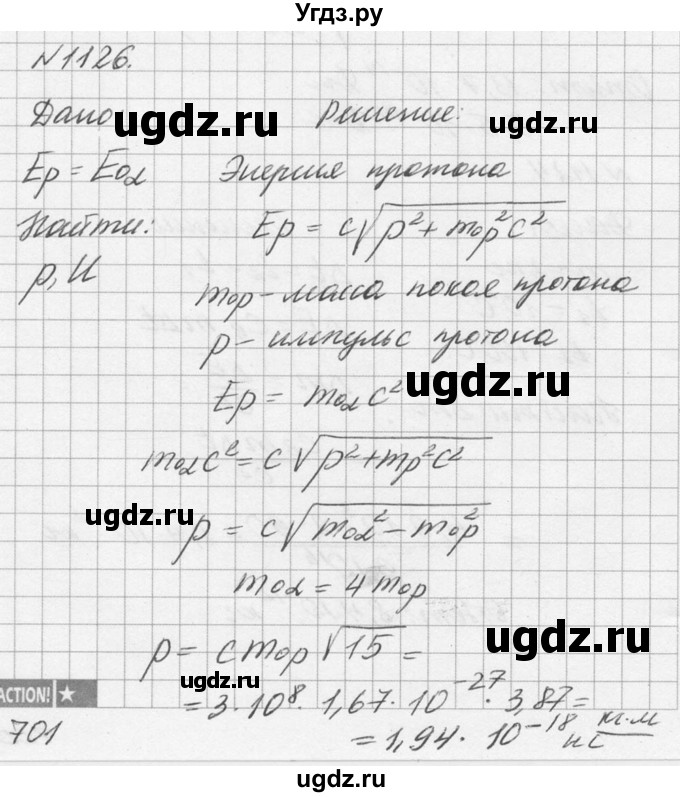 Угдз.ру
N 1126.
Дано: Решение:
ugdz.ru
Ep = E₀α Энергия протона
Найти: Ep = c√(p² + m₀p²c²)
p, U
m₀p - масса покоя протона
p - импульс протона
ugdz.ru
Ep = m₀αc²
m₀αc² = c√(p² + mp²c²)
ugdz.ru
p = c√(m₀α² - m₀p²)
m₀α = 4m₀p
ugdz.ru
p = cm₀p√15 =
ugdz.ru
ACTION! ★
= 3·10⁸·1,67·10⁻²⁷·3,87 =
701
= 1,94·10⁻¹⁸ кг·м/с
ugdz.ru